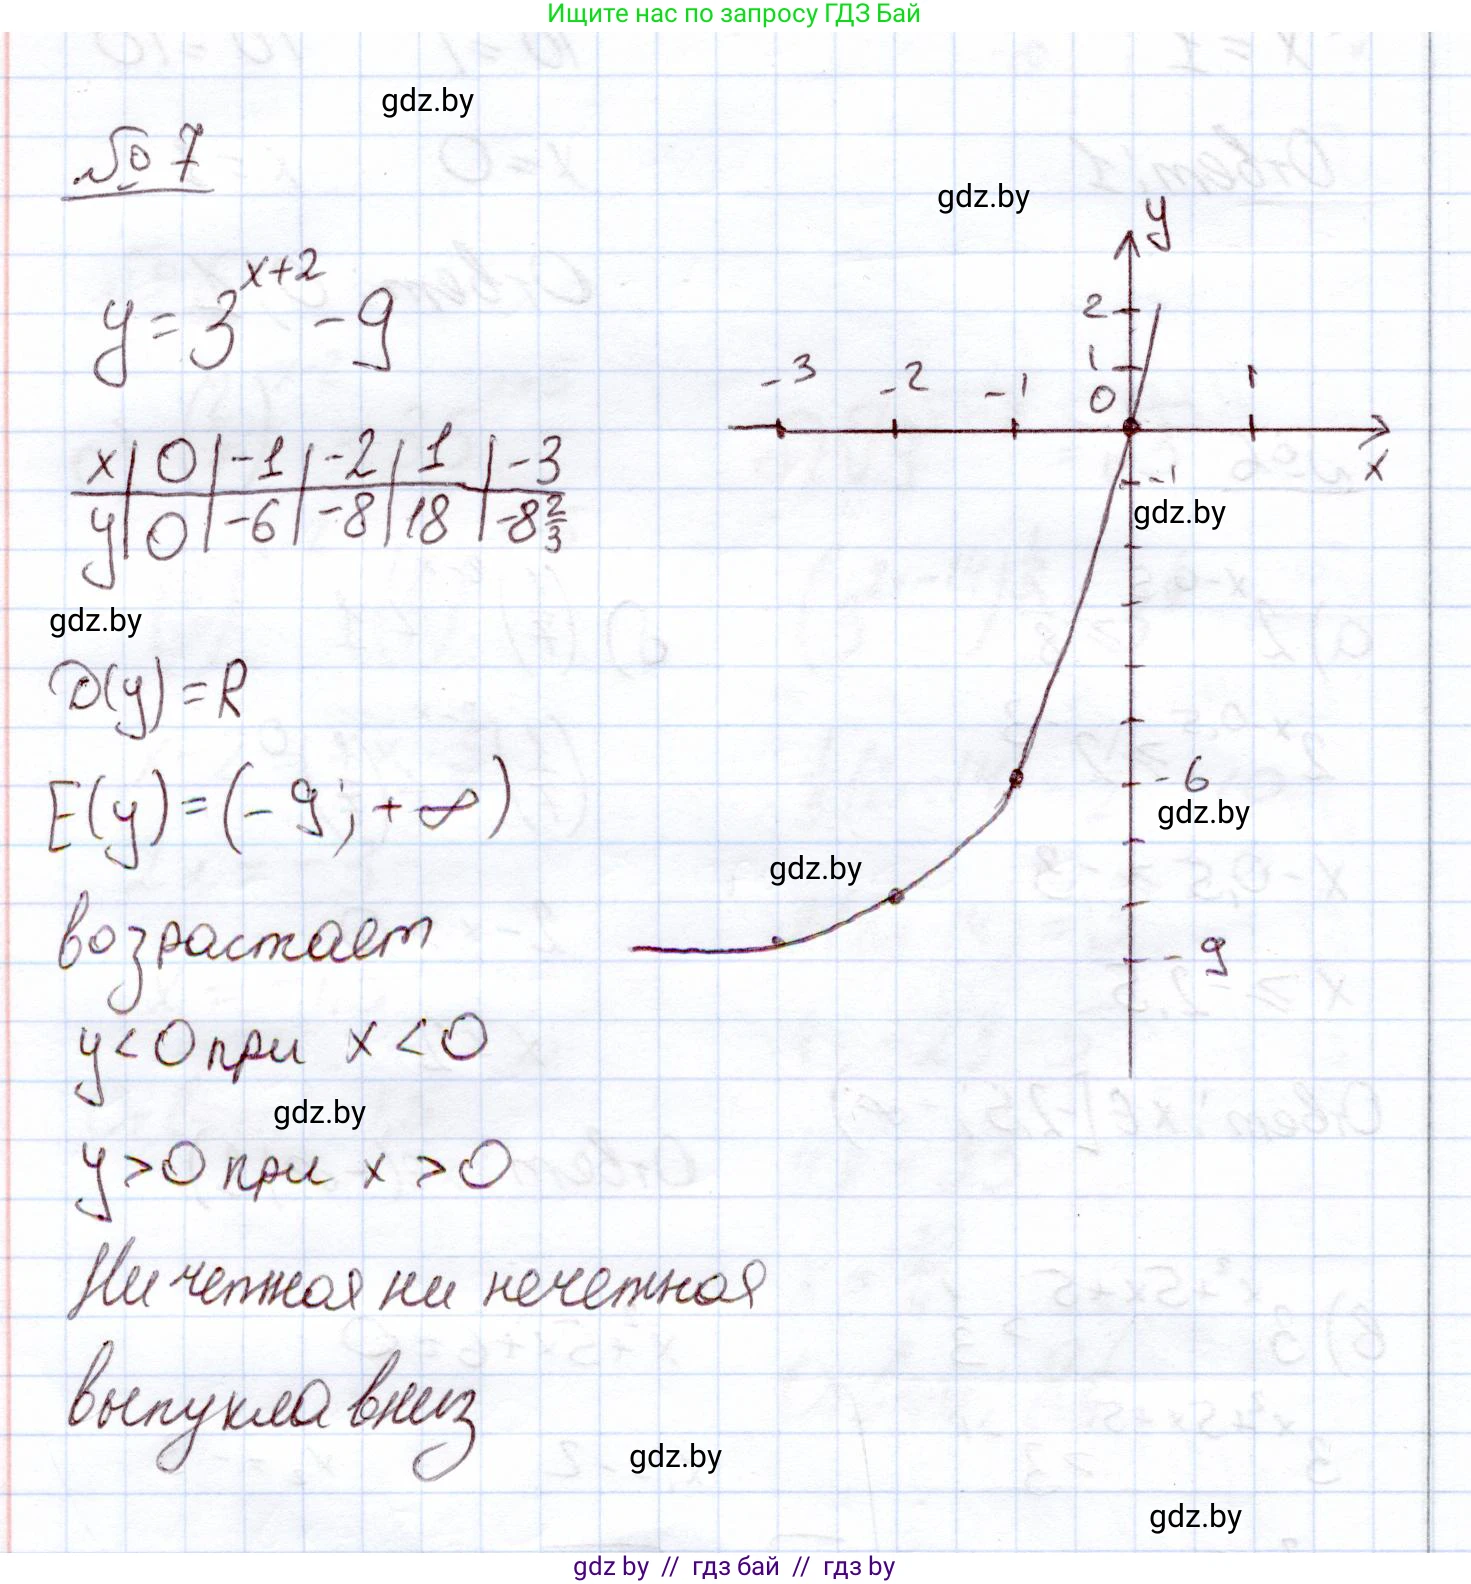 Ищите нас по запросу ГДЗ Бай
gdz.by
№ 7
gdz.by
y = 3^{x+2} - 9
x | 0 | -1 | -2 | 1 | -3
y | 0 | -6 | -8 | 18 | -8 2/3
gdz.by
D(y) = R
E(y) = (-9; +∞)
возрастает
y < 0 при x < 0
gdz.by
y > 0 при x > 0
Ни четная ни нечетная
выпукла вниз
y
2
1
0
-3 -2 -1 1
x
-1
gdz.by
-6
gdz.by
gdz.by
-9
gdz.by
gdz.by
gdz.by // гдз бай // гдз by